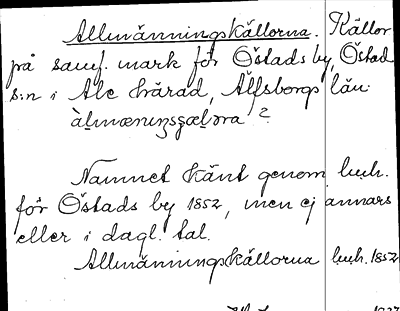 Allmänningskällorna. Källor
på samf. mark för Östads by, Östad
s:n i Ale härad, Älfsborgs län.
Namnet känt genom luh.
för Östads by 1852, men ej annars
eller i dagl. tal.
Allmänningskällorna luh. 1852